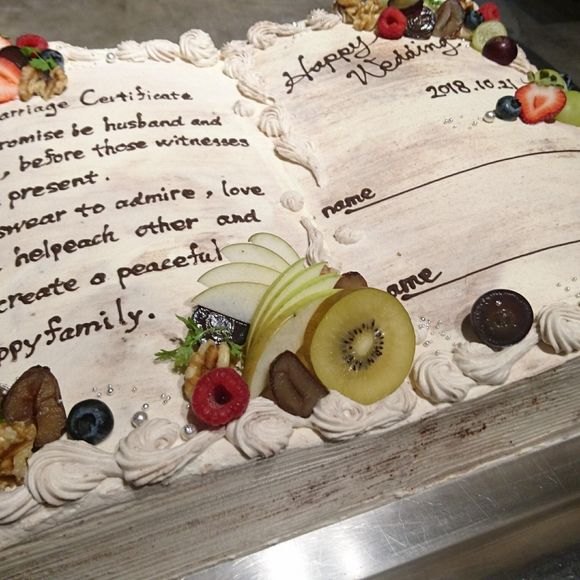 arriage Certificate
romise be husband and
, before those witnesses
present.
swear to admire, love
helpeach other and
create a peaceful
ppyfamily.
Happy
Wedding.
2018.10.21
name
name